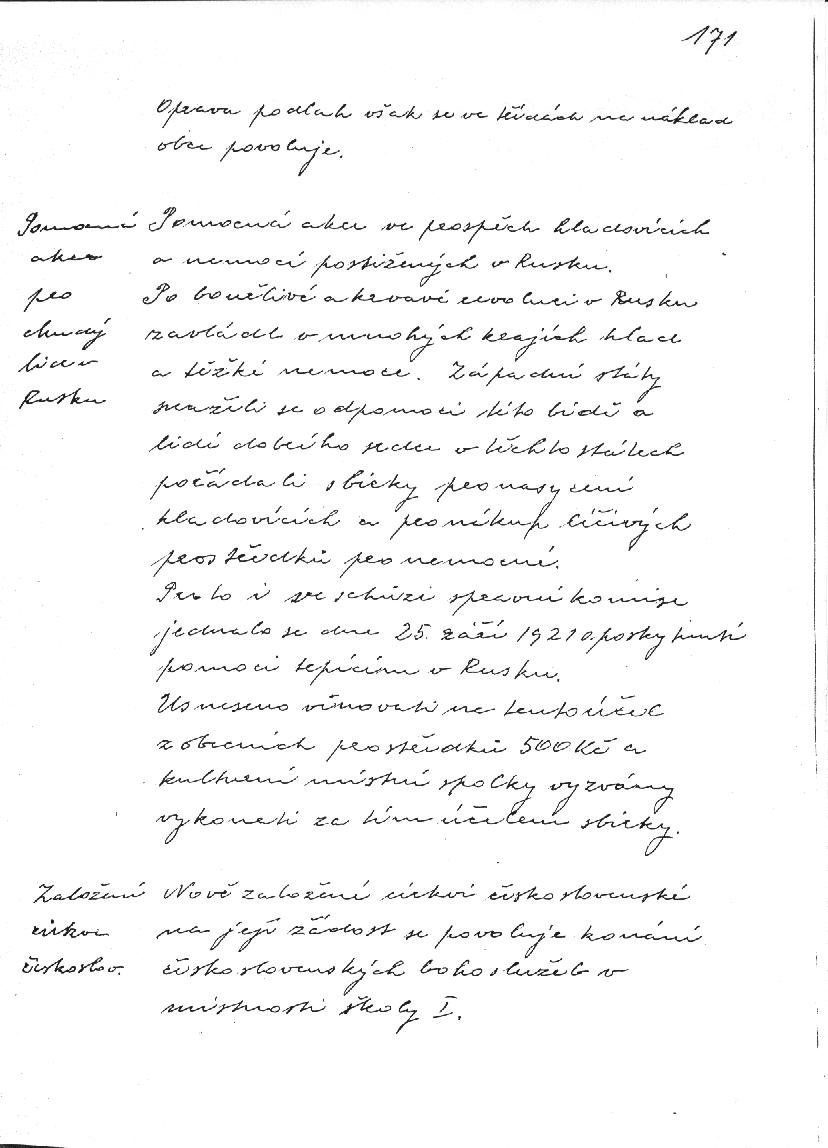 171
Oprava podlah však se ve třídách na náklad
obce povoluje.
Pomocná
akce
pro
chudý
lid v
Rusku
Pomocná akce ve prospěch hladovících
a nemocí postižených v Rusku.
Po bouřlivé a krvavé revoluci v Rusku
zavládl v mnohých krajích hlad
a těžké nemoce. Západní státy
snažili se odpomoci této bídě a
lidé dobrého srdce v těchto státech
pořádali sbírky pro nasycení
hladovících a pro nákup léčivých
prostředků pro nemocné.
Proto i ve schůzi správní komise
jednalo se dne 25. září 1921 o poskytnutí
pomoci trpícím v Rusku.
Usneseno věnovati na tento účel
z obecních prostředků 500 Kč a
kulturní místní spolky vyzvány
vykonati za tím účelem sbírky.
Založení
církve
českoslov.
Nově založené církvi československé
na její žádost se povoluje konání
československých bohoslužeb v
místnosti školy I.